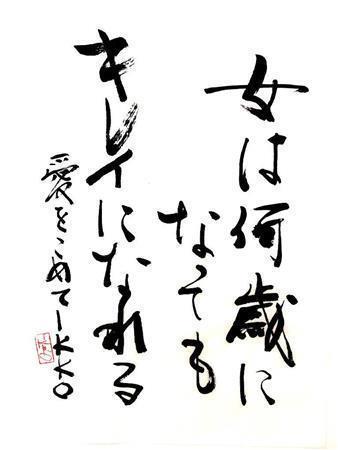 女は何歳に
なっても
キレイになれる
愛をこめてIKKO